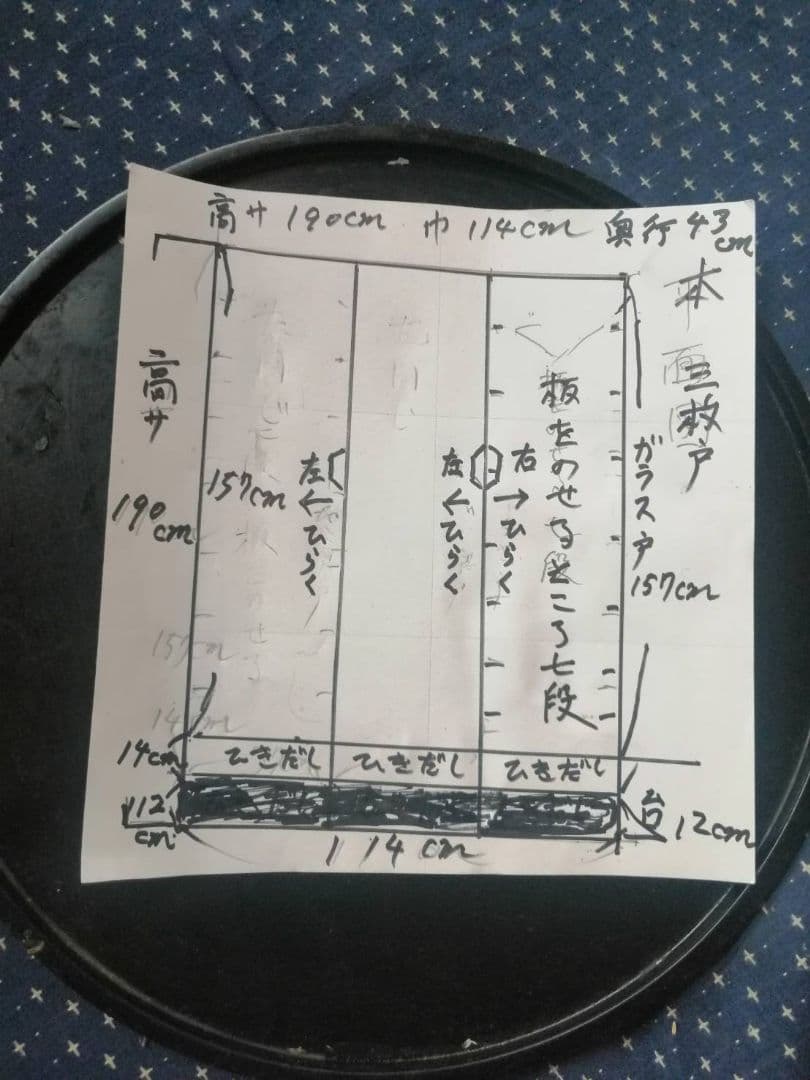 高サ 190cm 巾 114cm 奥行 43cm
本
三枚戸
高サ
190cm
157cm
左←ひらく
左←ひらく
右→ひらく
板をのせるところ七段
ガラス戸
157cm
14cm
ひきだし ひきだし ひきだし
12cm
台 12cm
114cm